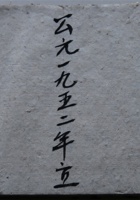 公元一九五二年立